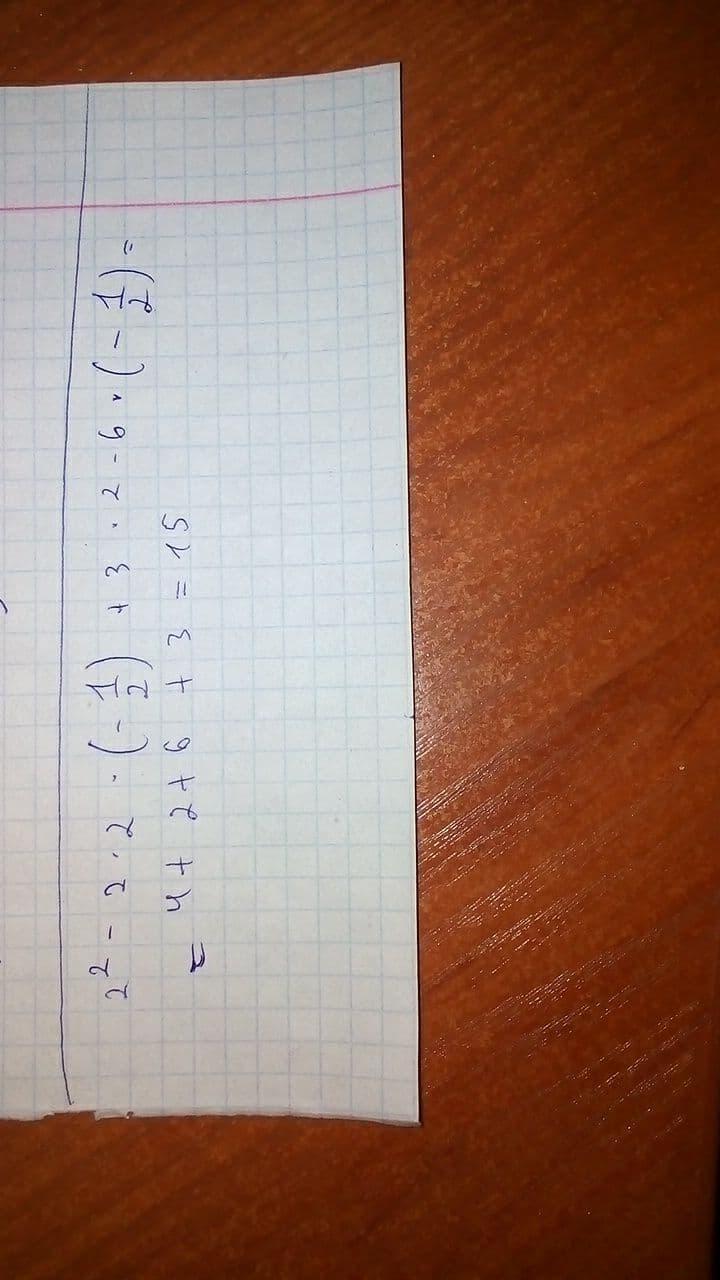 2² - 2 · 2 · (-1/2) + 3 · 2 - 6 · (-1/2) =
= 4 + 2 + 6 + 3 = 15